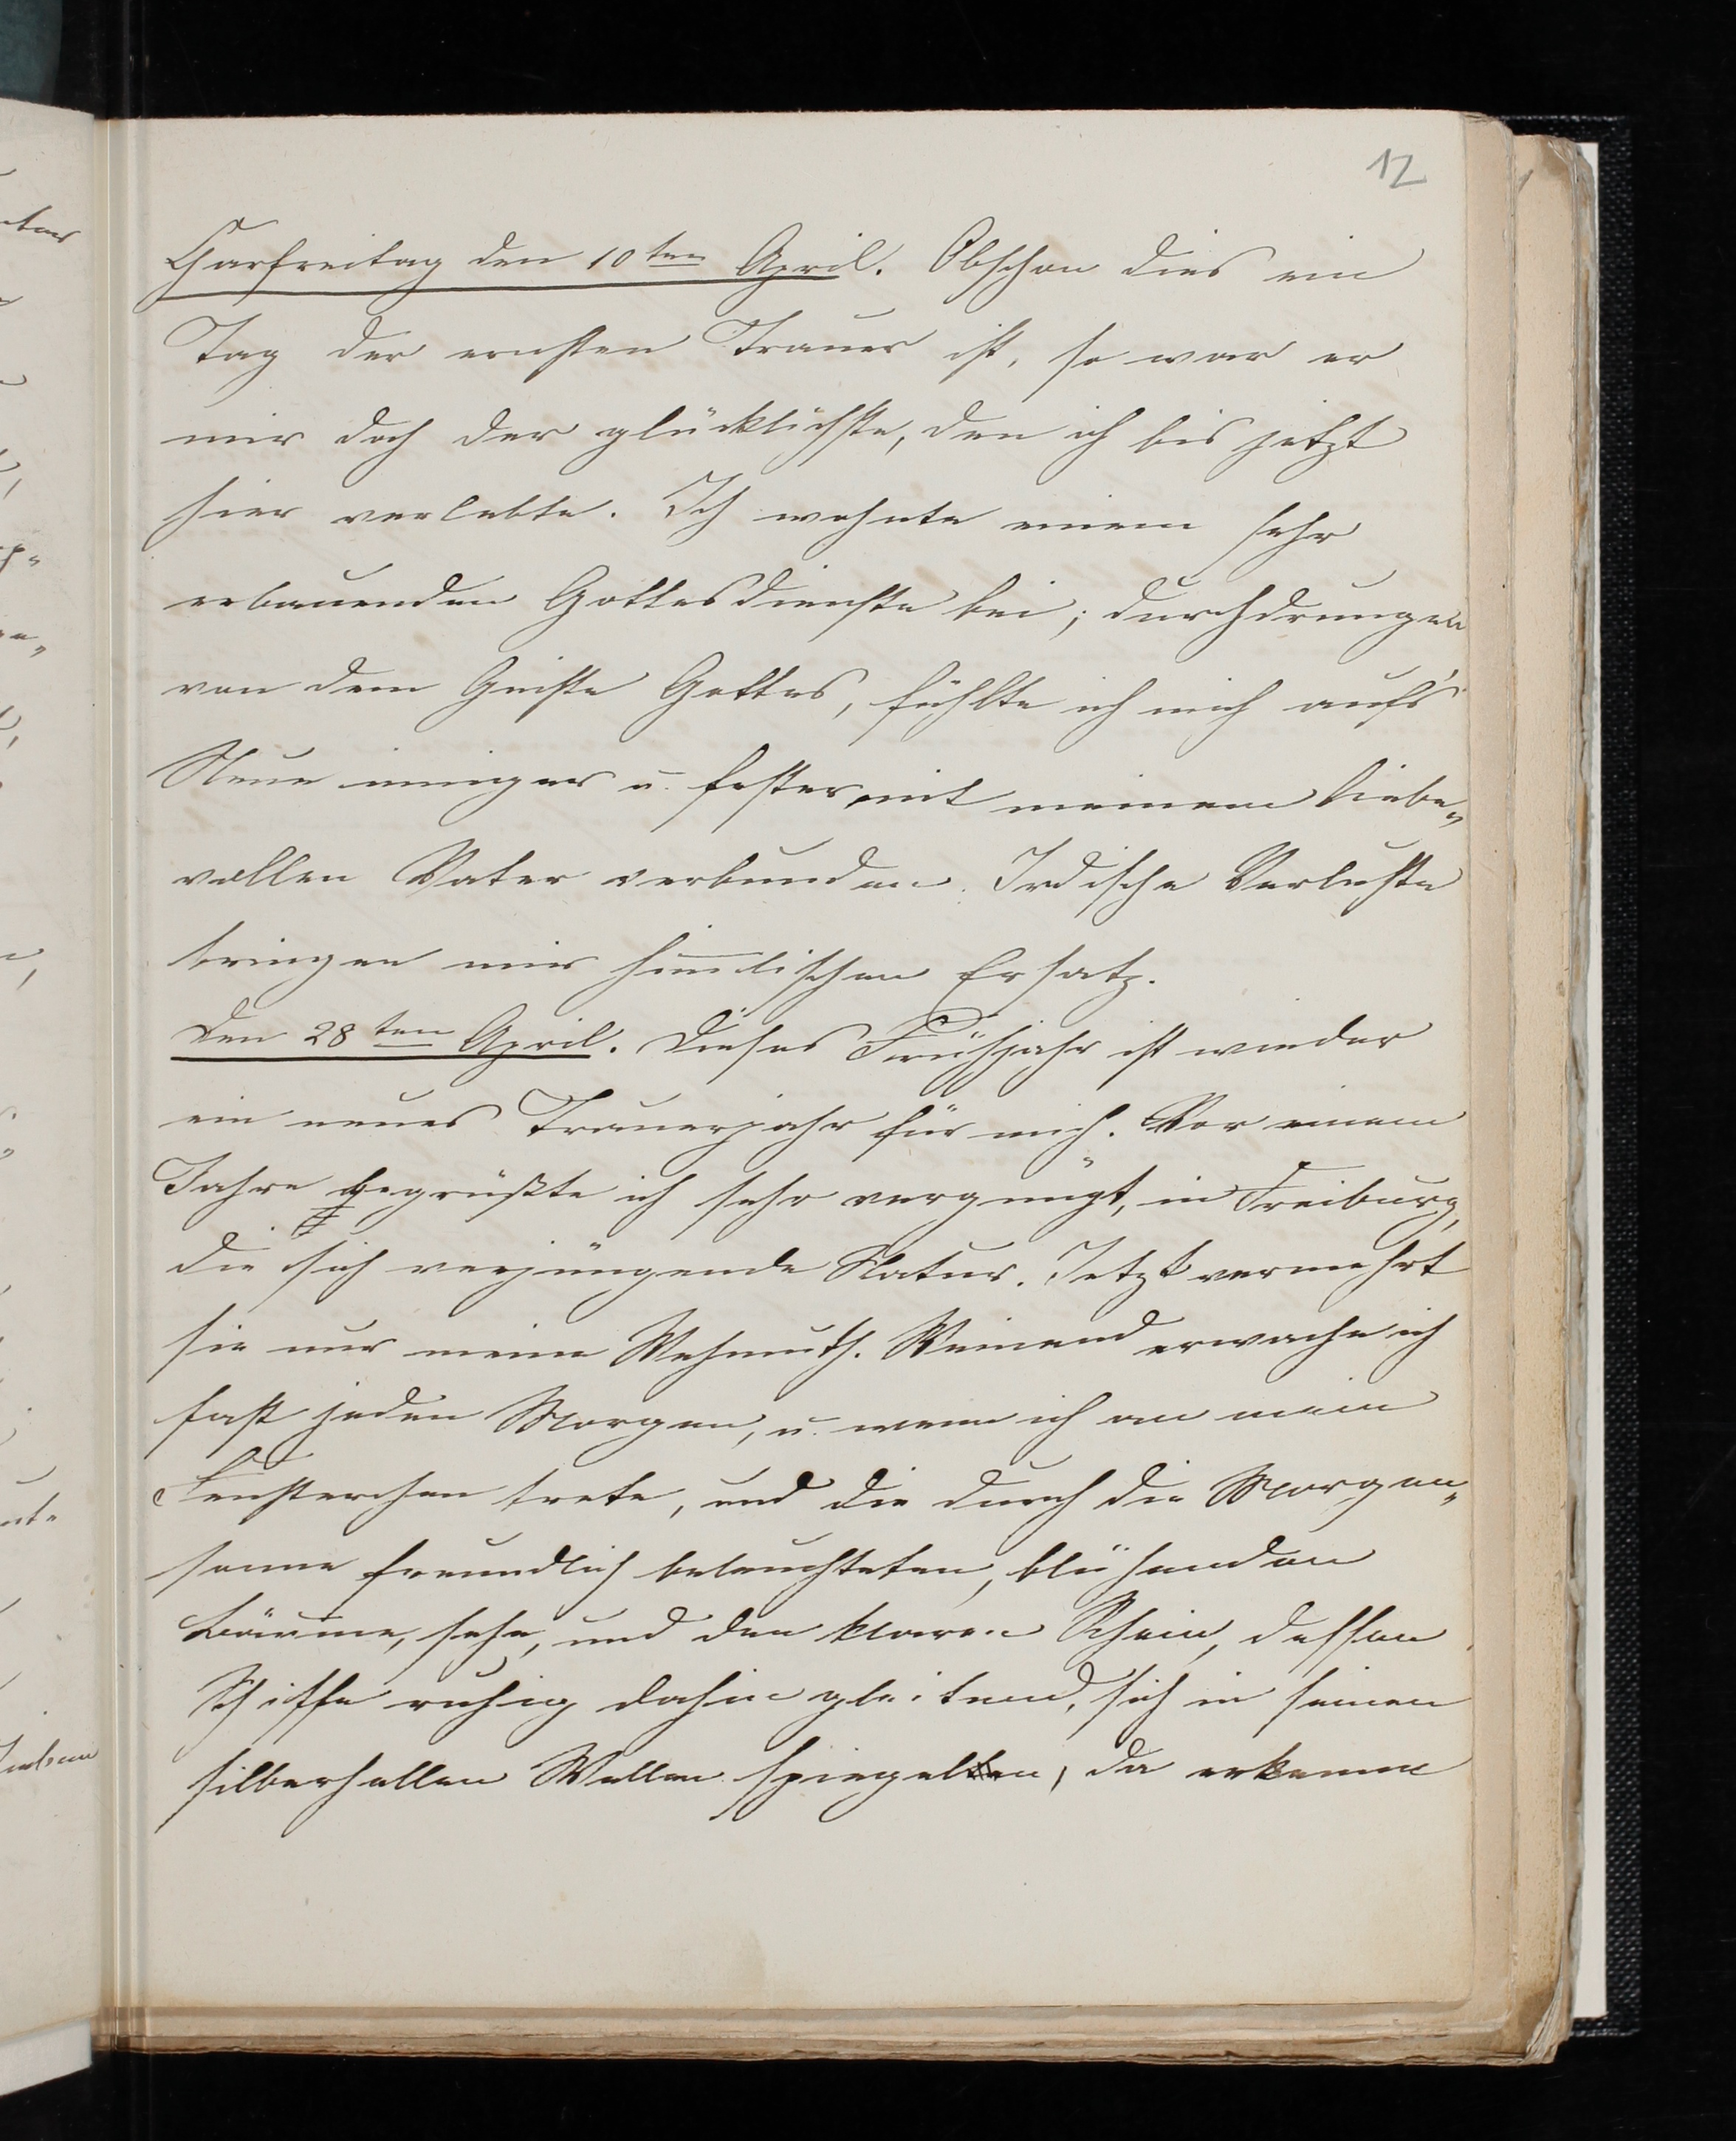 12
Charfreitag den 10ten April. Obschon dies ein
Tag der ernsten Trauer ist, so war er
mir doch der glücklichste, den ich bis jetzt
hier verlebte. Ich wohnte einem sehr
erbauenden Gottesdienste bei; durchdrungen
von dem Geiste Gottes, fühlte ich mich auf's
Neue inniger u. fester mit meinem liebe„
vollen Vater verbunden. Irdische Verluste
bringen mir him̅lischen Ersatz.
Den 28ten April. Dieses Frühjahr ist wieder
ein neues Trauerjahr für mich. Vor einem
Jahre begrüßte ich sehr vergnügt, in Freiburg,
die sich verjüngende Natur. Jetzt vermehrt
sie nur meine Wehmuth. Weinend erwache ich
fast jeden Morgen, u. wenn ich an mein
Fensterchen trete, und die durch die Morgen„
sonne freundlich beleuchteten, blühenden
Bäume, sehe, und den klaren Rhein, dessen
Schiffe ruhig dahin gleitend, sich in seinen
silberhellen Wellen spiegeln, da erkenne